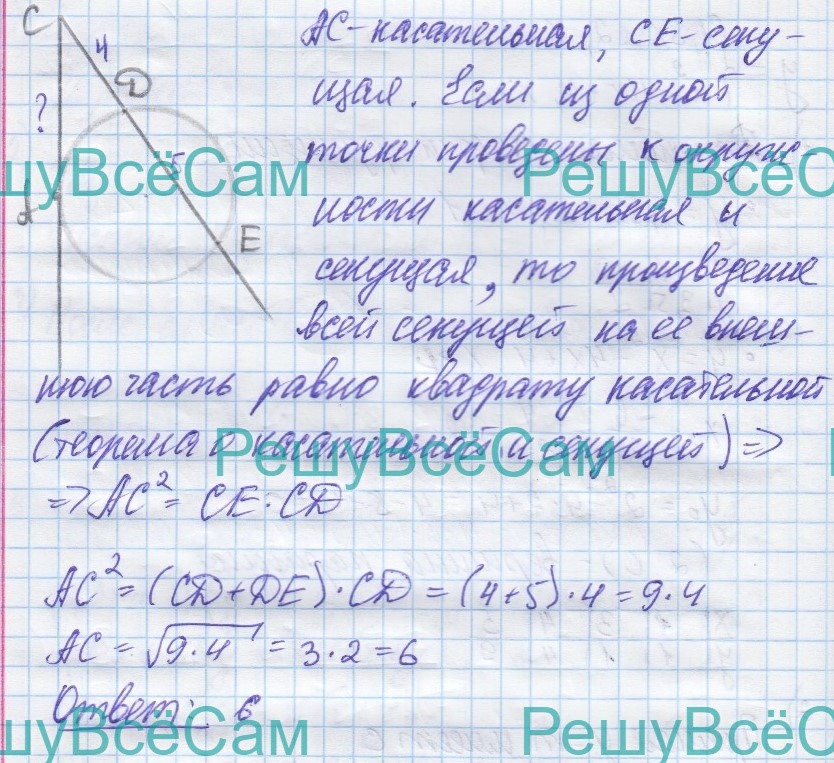 C
4
D
?
5
A
E
AC-касательная, CE-секу-
щая. Если из одной
точки проведены к окруж-
ности касательная и
секущая, то произведение
всей секущей на ее внеш-
нюю часть равно квадрату касательной
(теорема о касательной и секущей) =>
=> AC² = CE·CD
AC² = (CD+DE)·CD = (4+5)·4 = 9·4
AC = √9·4 = 3·2 = 6
Ответ: 6
РешуВсёСам
РешуВсёСам
РешуВсёСам
РешуВсёСам
РешуВсёСам